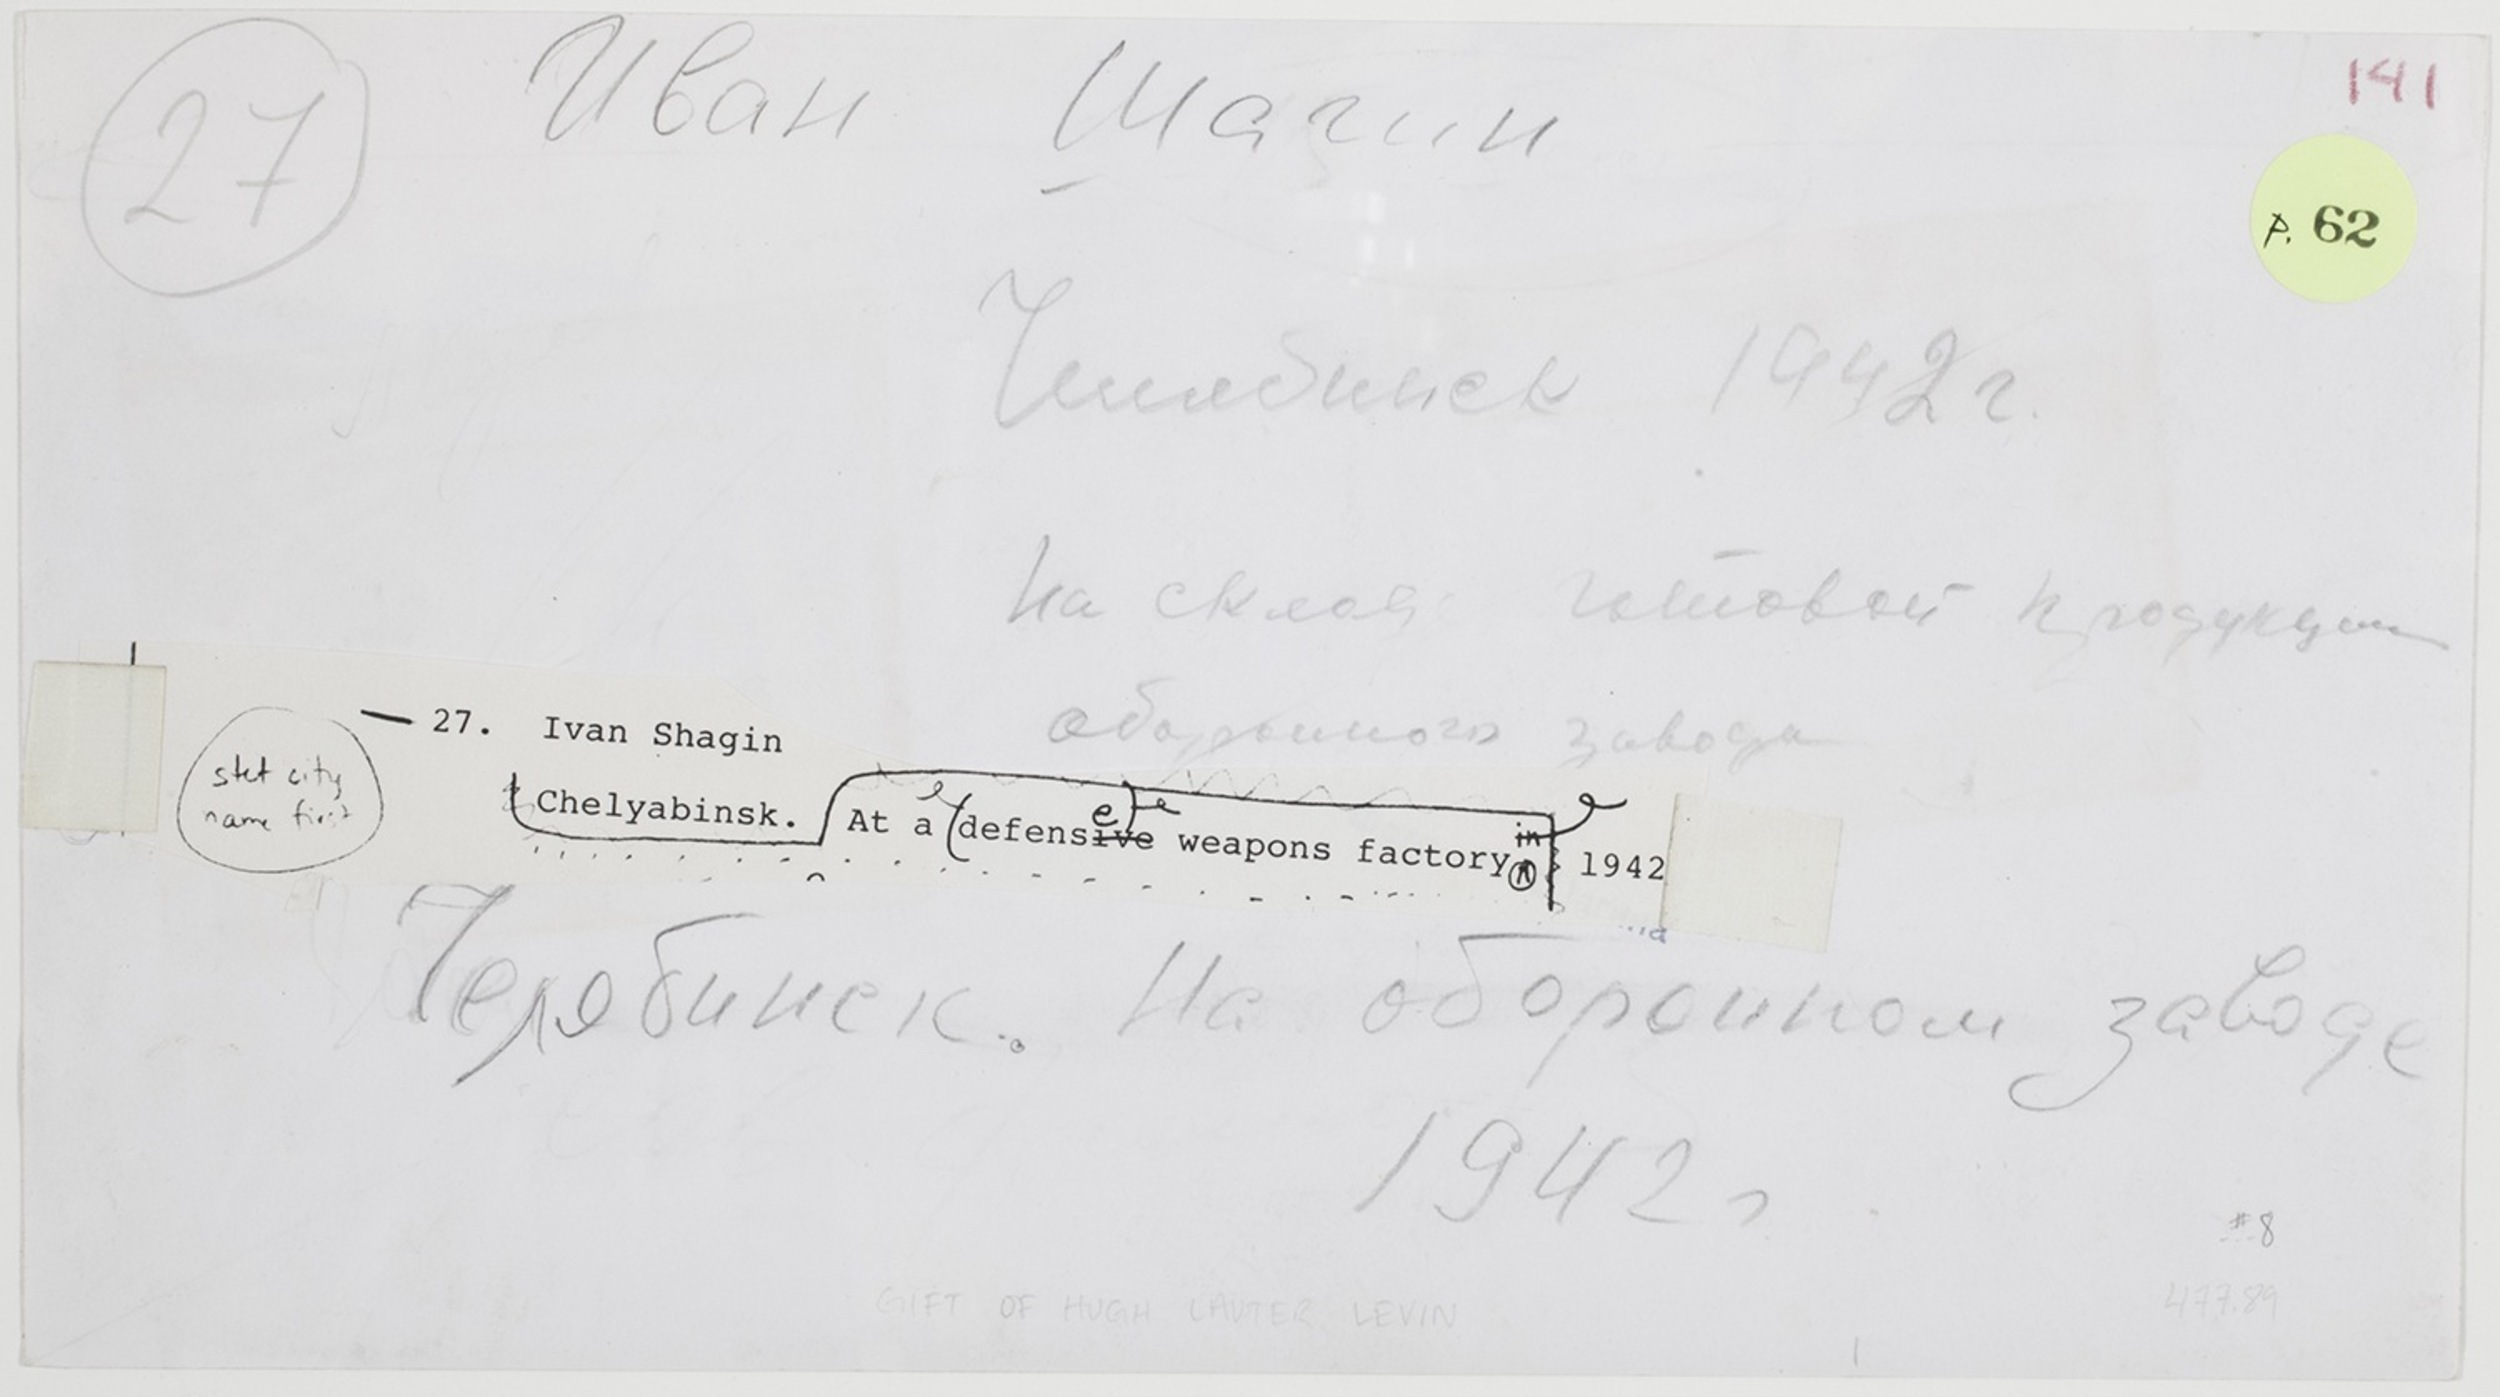 27
Иван Шагин
141
p. 62
Челябинск 1942 г.
На складе готовой продукции
оборонного завода
27. Ivan Shagin
stet city
name first
Chelyabinsk. At a defensive weapons factory in 1942
e
Челябинск. На оборонном заводе
1942 г
#8
GIFT OF HUGH LAUTER LEVIN
477.89